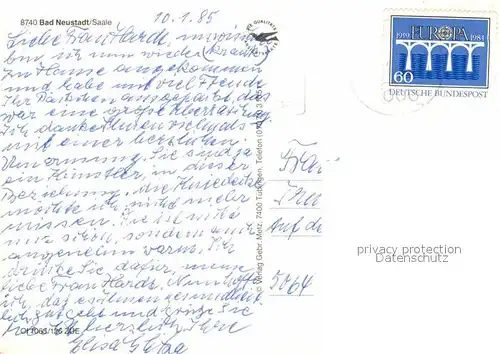 8740 Bad Neustadt/Saale
10.1.85
Liebe Frau Hardt, inzwischen
bin ich nun wieder (krank)
zu Hause angekommen
und habe mit viel Freude
Ihr Päckchen ausgepackt, das
war eine große Überraschung.
Ich danke Ihnen nochmals
mit einer herzlichen
Umarmung. Sie sind ja
ein Künstler, in dieser
Beziehung, die
möchte ich nicht mehr
missen. Sie ist nicht
nur schön, sondern auch
angenehm warm. Ich
drücke Sie dafür, meine
liebe Frau Hardt. Nun hoffe
ich, daß es Ihnen gesundheitlich
gut geht und grüße Sie
herzlichst, Ihre
Elisa
© Verlag Gebr. Metz, 7400 Tübingen, Telefon
1959 EUROPA 1984
60
DEUTSCHE BUNDESPOST
Frau
Auf de
5064
privacy protection
Datenschutz